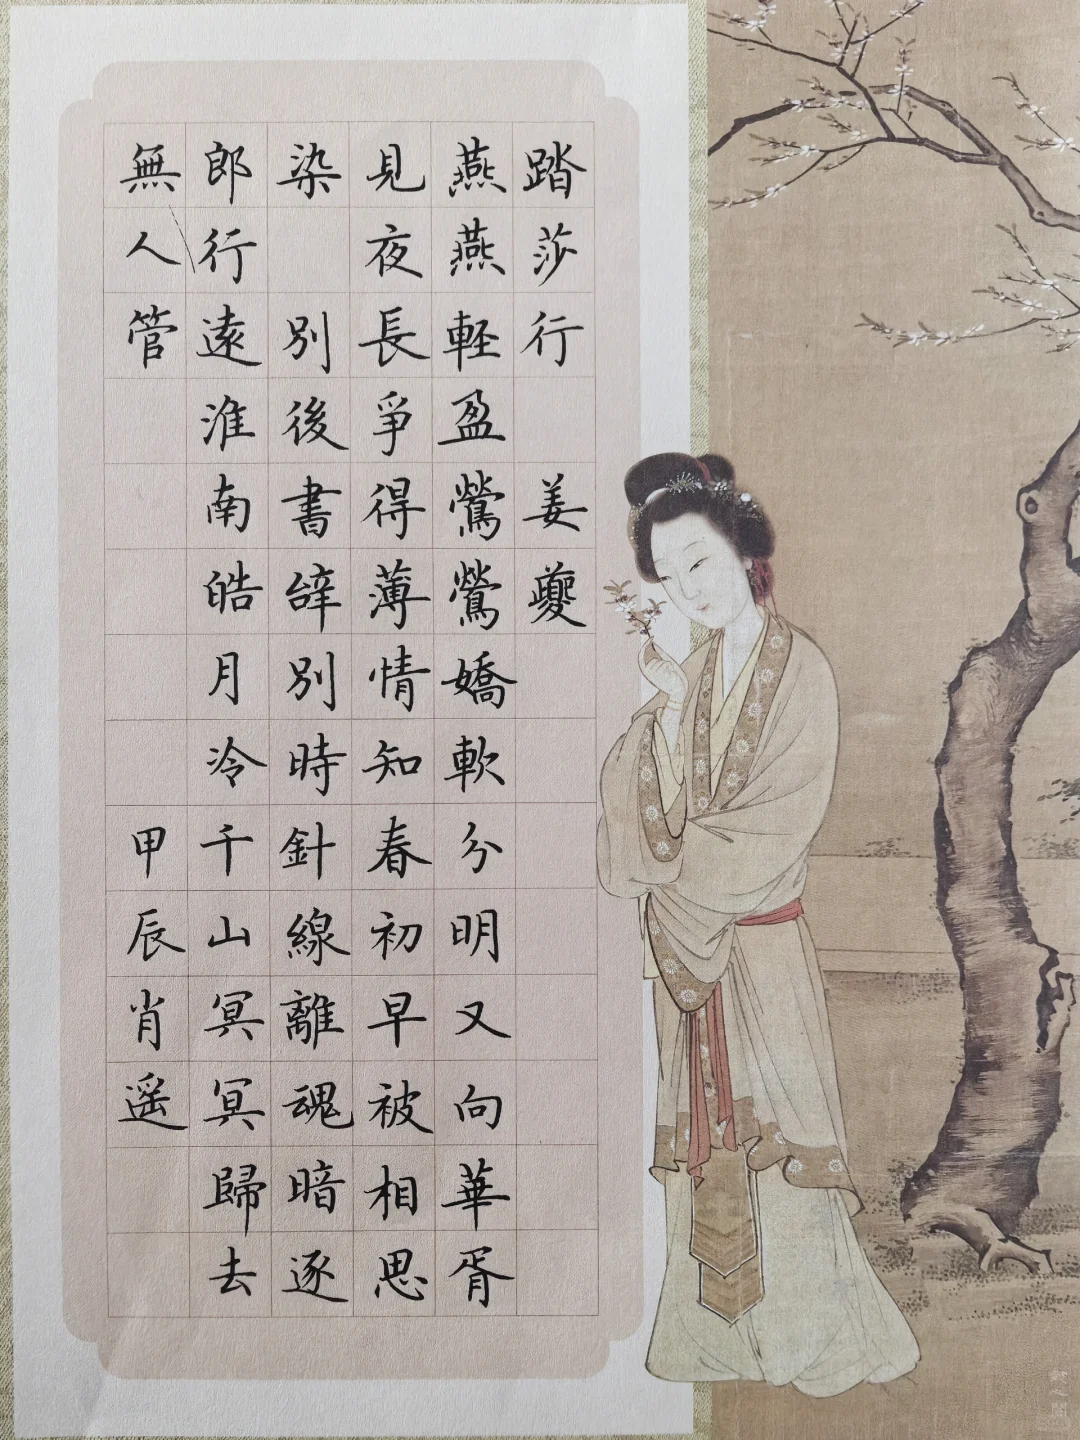 踏莎行 姜夔
燕燕軽盈鶯鶯嬌軟分明又向華胥
見夜長爭得薄情知春初早被相思
染 別後書辞別時針線離魂暗逐
郎行遠淮南皓月冷千山冥冥歸去
無人管 甲辰肖遥